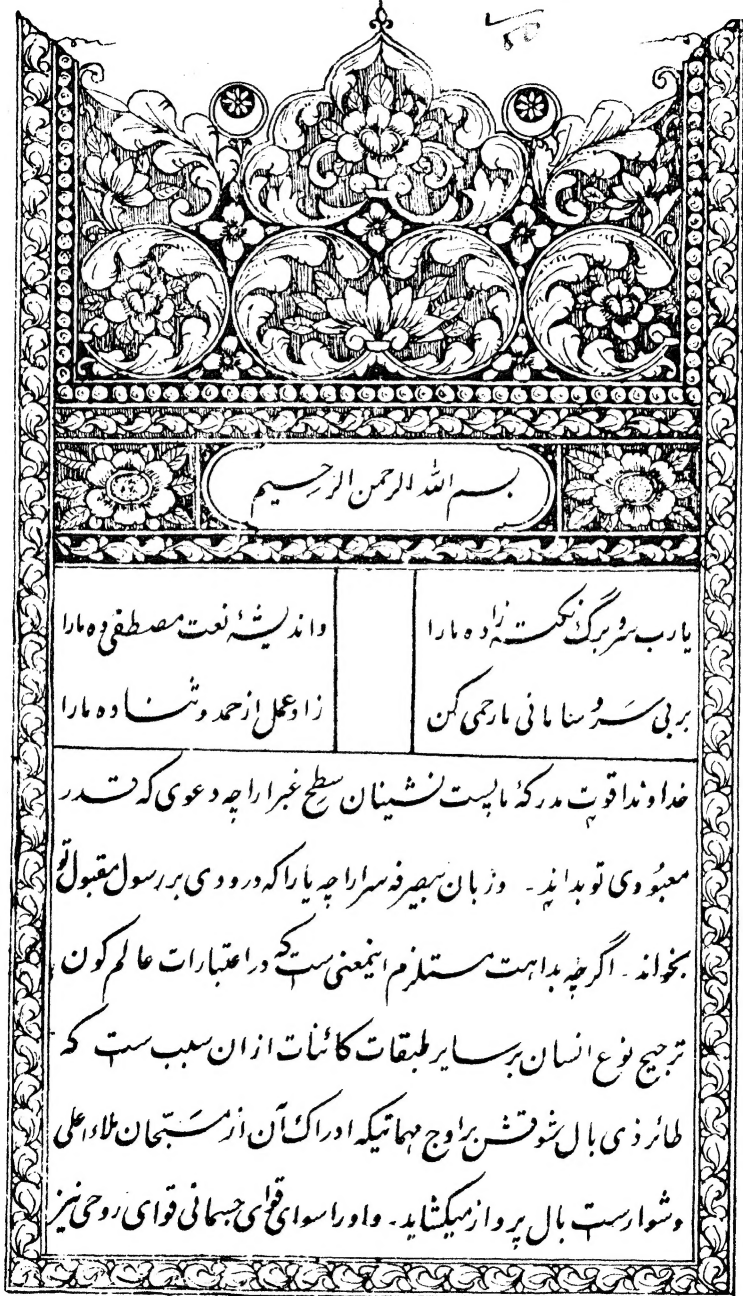 بسم الله الرحمن الرحیم
یارب سر و برگ نکته زا ده ما را واندیشهٔ نعت مصطفی ده مارا
بر بی سر و سامانی ما رحمی کن زاد عمل از حمد و ثنا ده مارا
خداوندا قوت مدرکهٔ ما پست نشینان سطح غبرا را چه دعوی که قدر
معبودی تو بداند۔ وزبان بیصرفه سرا را چه یارا که درودی بر رسول مقبول تو
بخواند۔ اگرچه بداهت مستلزم اینمعنی ست که در اعتبارات عالم کون
ترجیح نوع انسان بر سایر طبقات کائنات ازان سبب ست که
طائر ذی بال شوقش بر اوج مهماتیکه ادراک آن از مسبّحان ملاء اعلی
دشوارست بال پرواز میکشاید۔ واورا سوای قوای جسمانی قوای روحی نیز